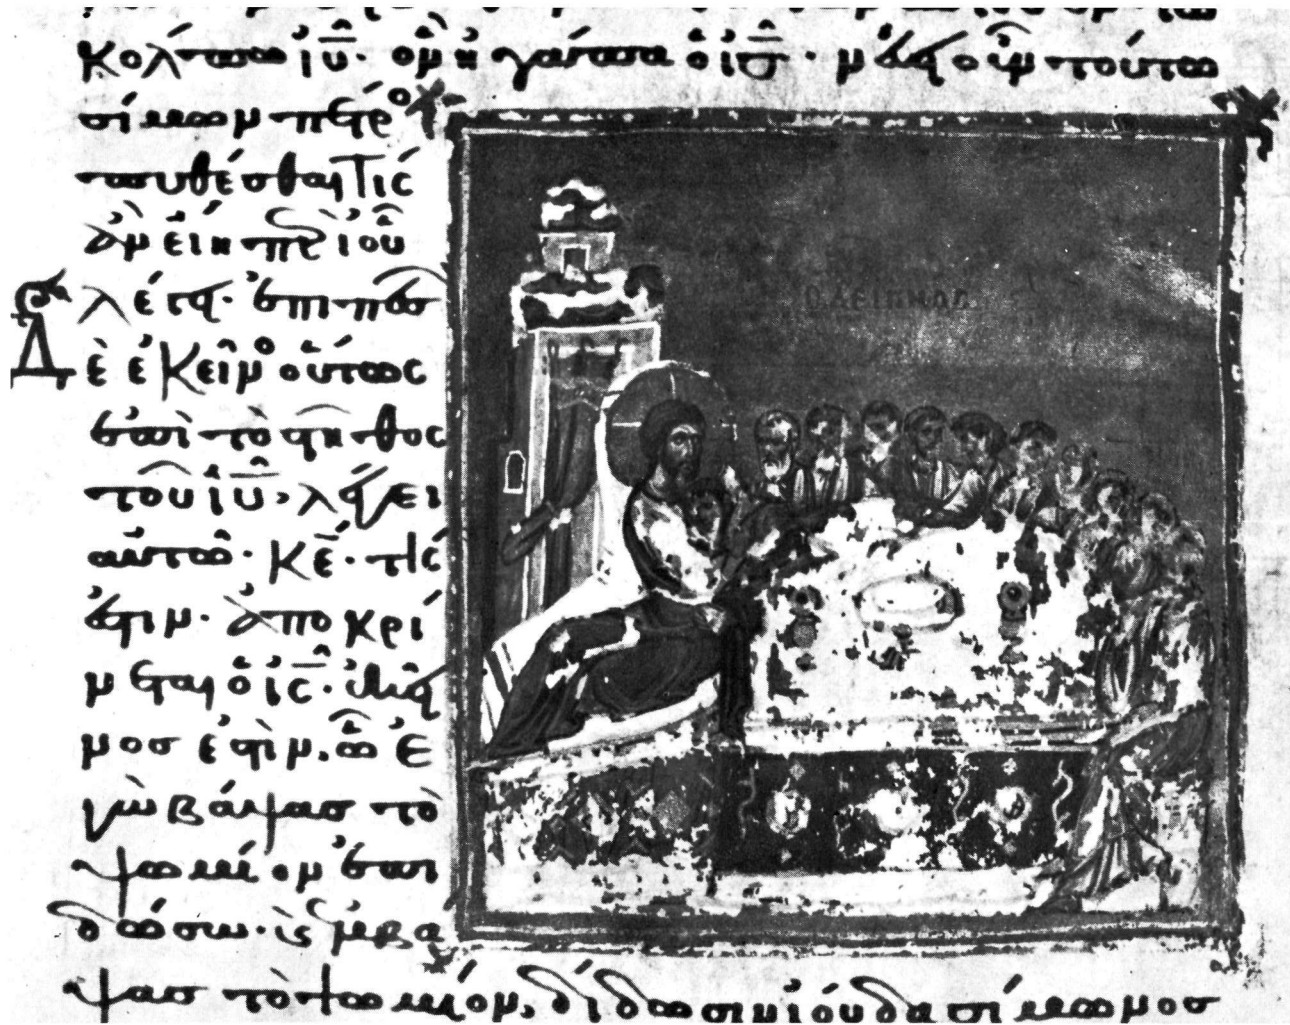 κόλπω ἰῦ· ὃν ἠγάπα ὁ ἰς̅· νεύει οὖν τούτω
σίμων πέτρο
πυθέσθαι τίς
ἂν εἴη πὲρ ὶ οὗ
λέγει· ἐπιπεσὼν
Δὲ ἐκεῖνο οὕτως
ἐπὶ τὸ στῆθος
τοῦ ἰῦ, λέγει
αὐτῶ· κε̅· τίς
ἐστιν· ἀποκρί
νεται ὁ ἰς̅· ἐκεῖ
νοσ ἐστὶν, ὧ ἐ
γὼ βάψασ τὸ
ψωμίον ἐπι
δώσω· κὶ ἐμβά
ψασ τὸ ψωμίον, δίδωσιν ἰούδα σίμωνοσ
Ο ΔΕΙΠΝΟΣ